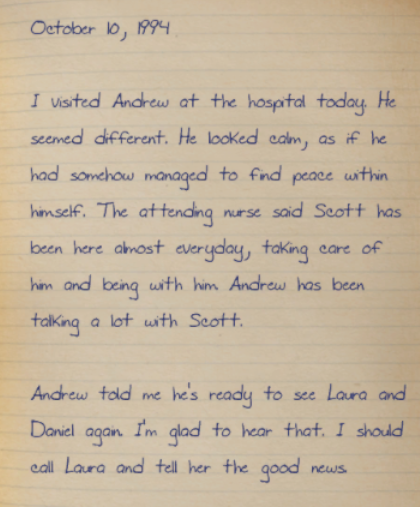 October 10, 1994
I visited Andrew at the hospital today. He
seemed different. He looked calm, as if he
had somehow managed to find peace within
himself. The attending nurse said Scott has
been here almost everyday, taking care of
him and being with him. Andrew has been
talking a lot with Scott.
Andrew told me he's ready to see Laura and
Daniel again. I'm glad to hear that. I should
call Laura and tell her the good news.